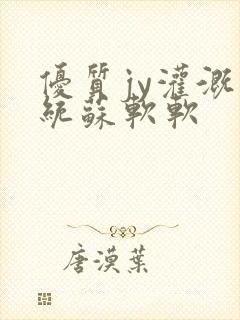 優質jy灌溉
統蘇軟軟
唐漠葉